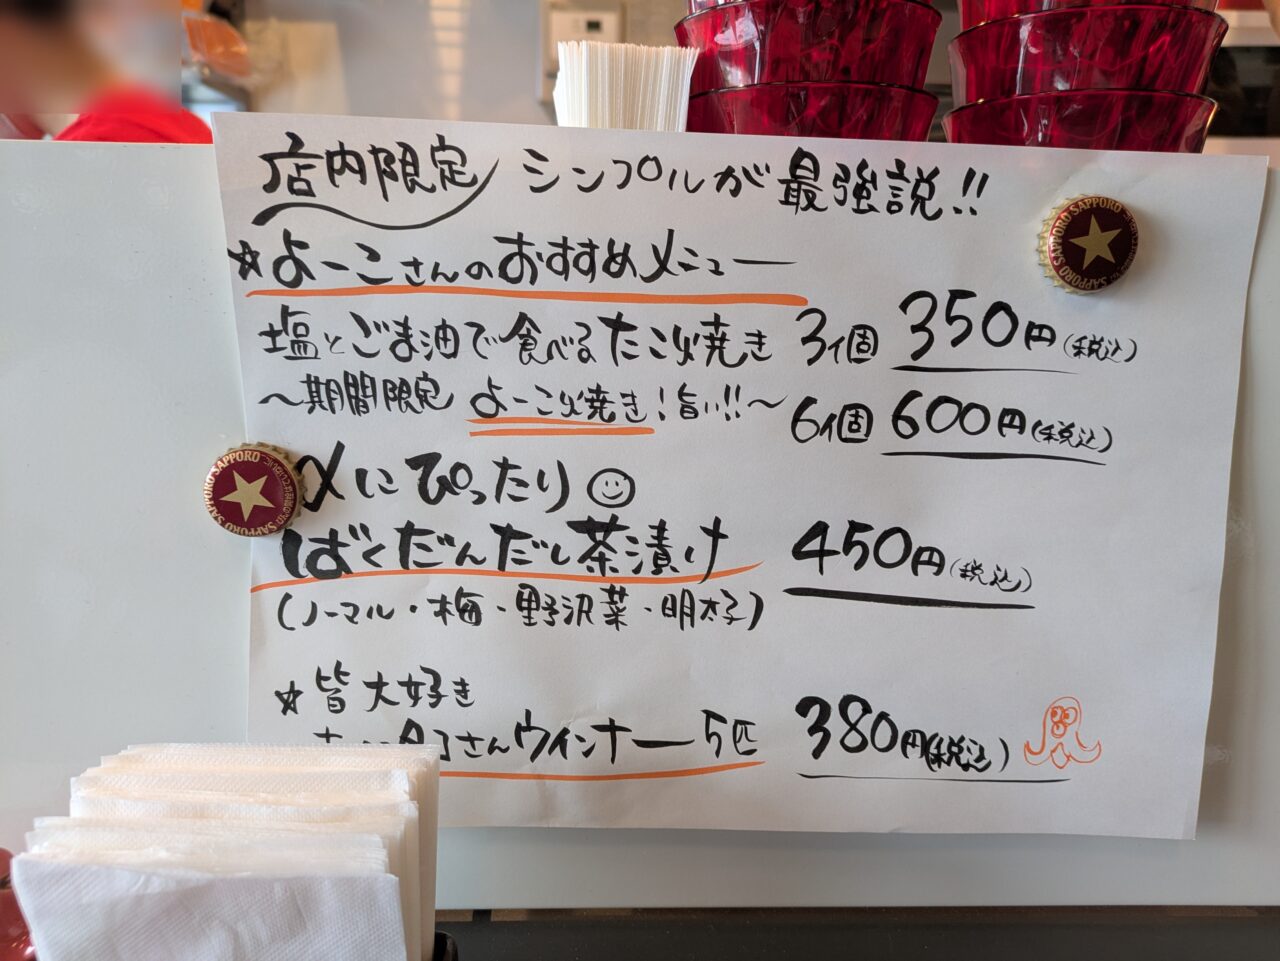 店内限定 シンプルが最強説!!
☆よーこさんのおすすめメニュー
塩とごま油で食べるたこ焼き 3個 350円(税込)
〜期間限定 よーこ焼き!旨い!!〜 6個 600円(税込)
〆にぴったり
ばくだんだし茶漬け 450円(税込)
(ノーマル・梅・野沢菜・明太子)
☆皆大好き
さんウインナー 5匹 380円(税込)
SAPPORO SAPPORO
SAPPORO SAPPORO